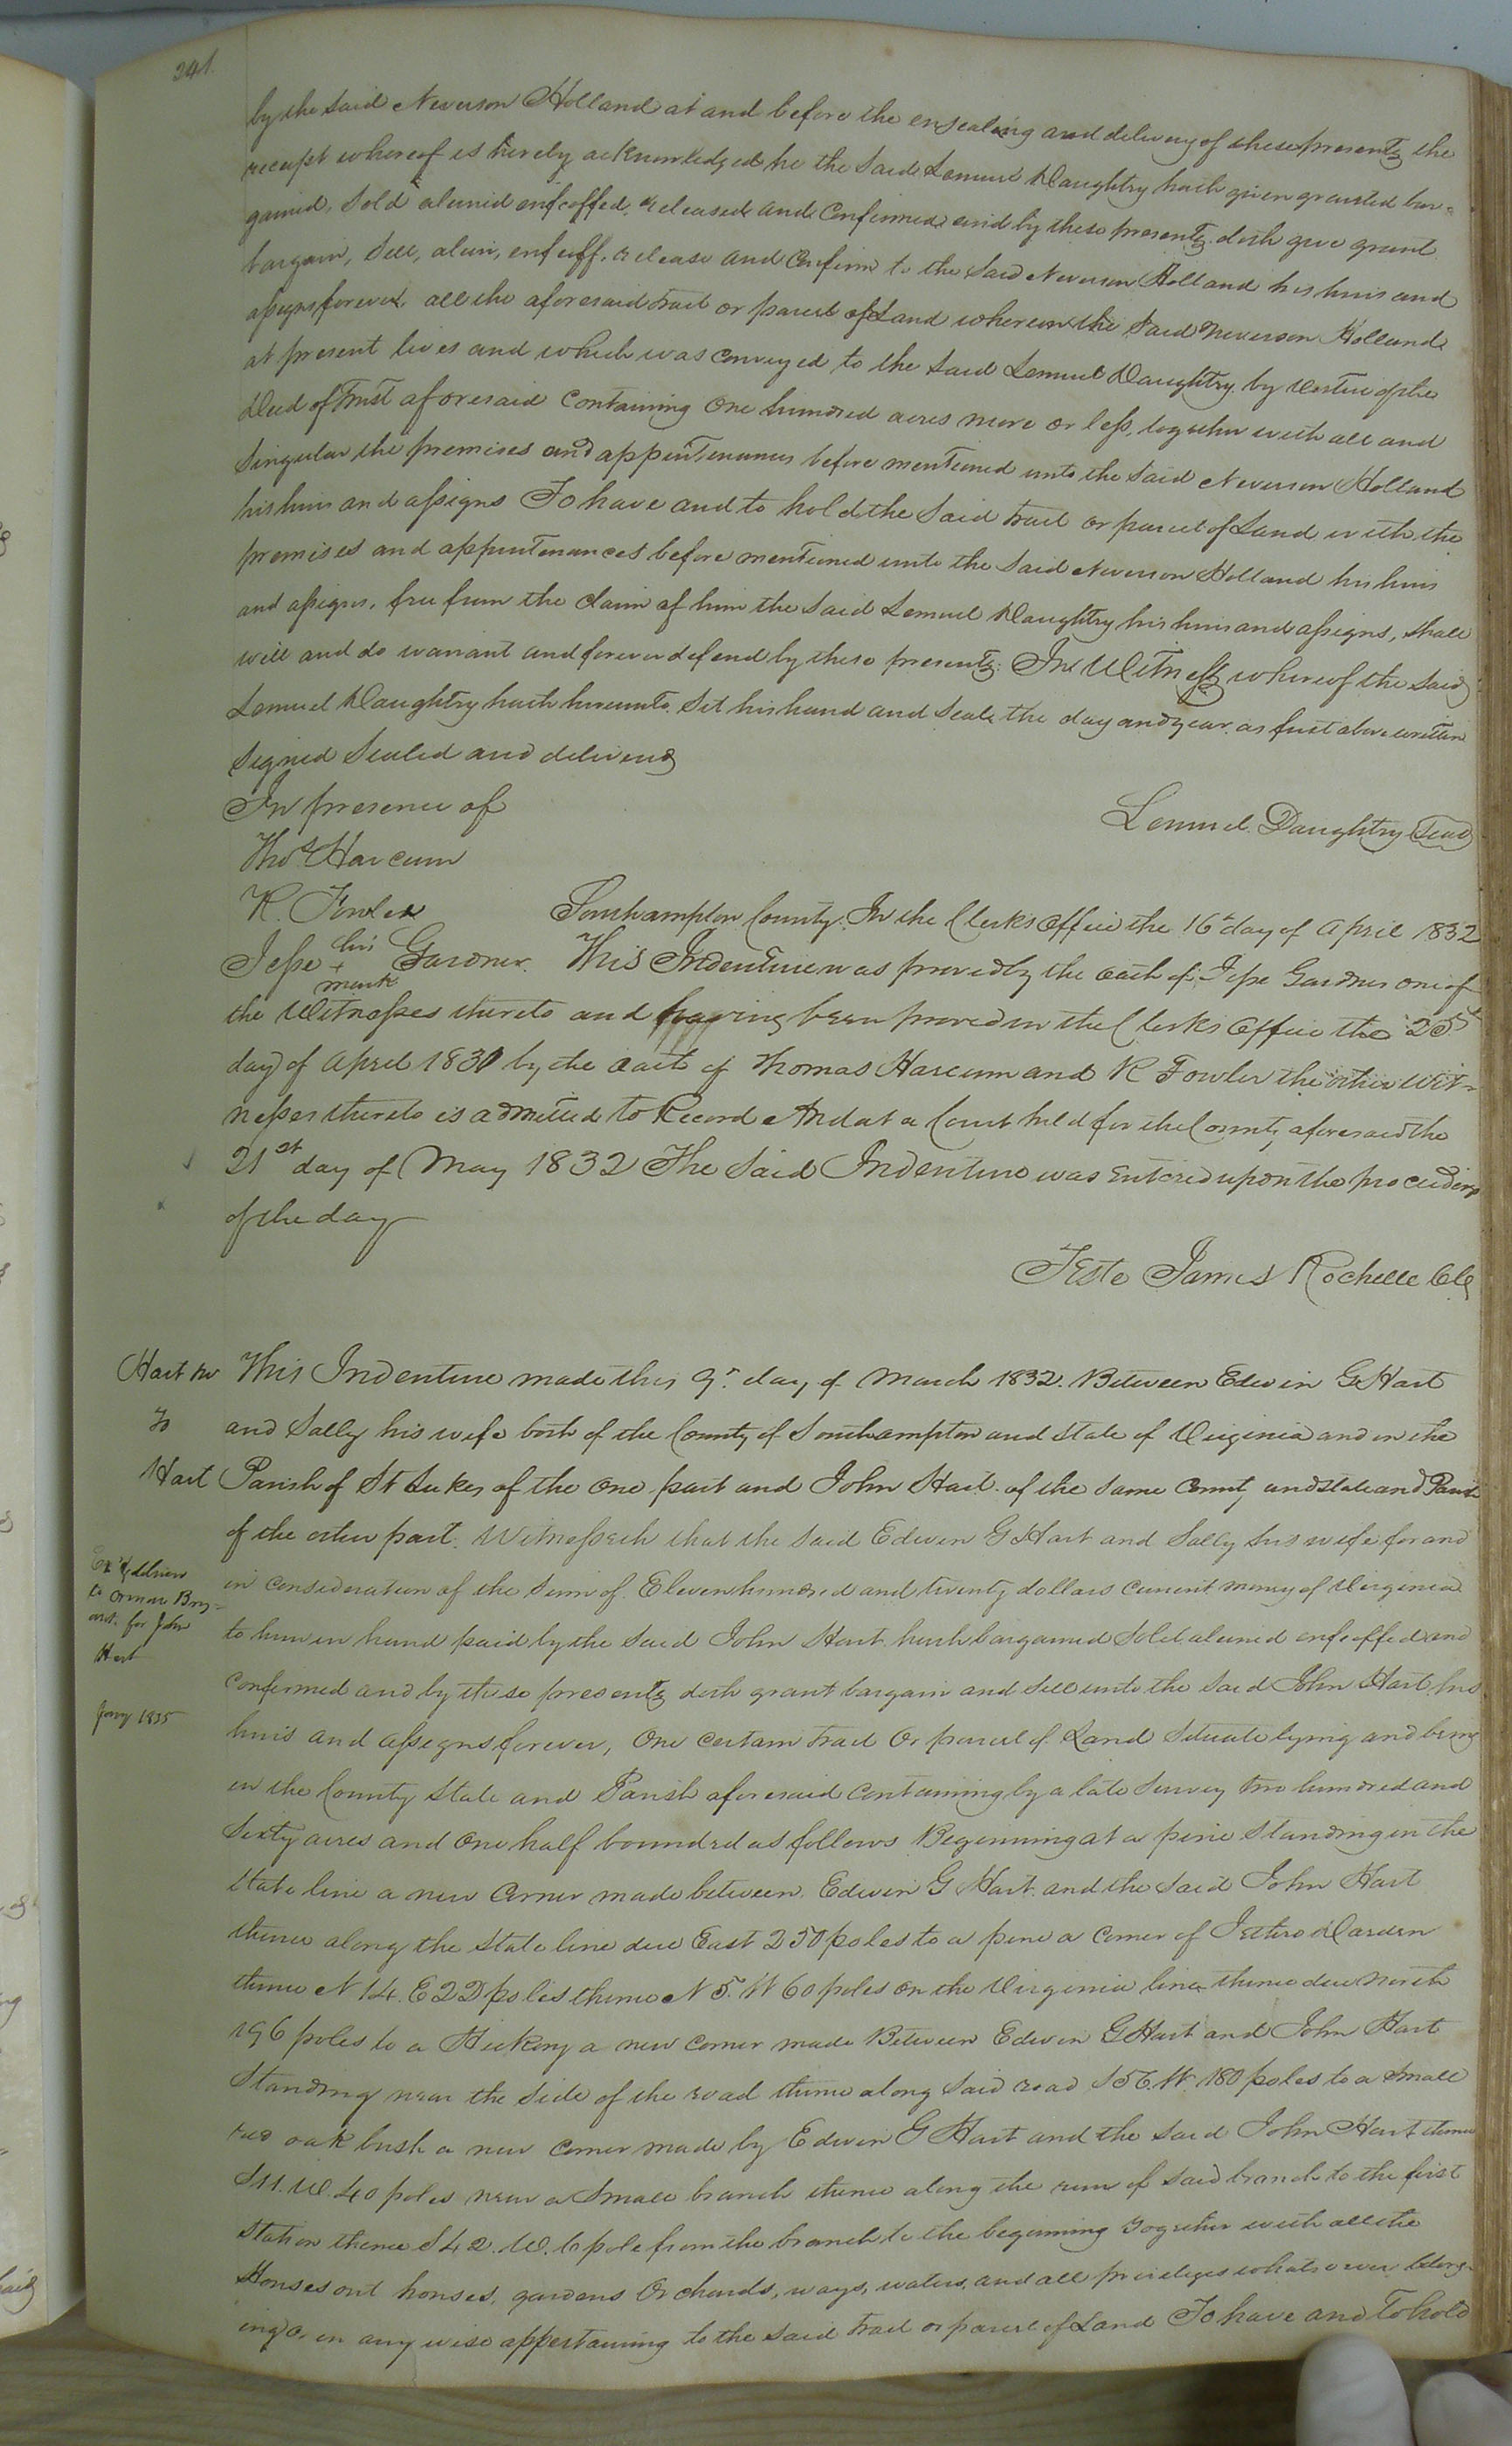 241.
by the said Neverson Holland at and before the ensealing and delivery of these presents the
receipt whereof is hereby acknowledged he the said Lemuel Daughtry hath given granted bar=
gained, sold aliened enfeoffed, released and confirmed and by these presents doth give grant
bargain, sell, alien, enfeoff, release and confirm to the said Neverson Holland his heirs and
assigns forever, all the aforesaid tract or parcel of Land whereon the said Neverson Holland
at present lives and which was conveyed to the said Lemuel Daughtry by virtue of the
Deed of Trust aforesaid containing one hundred acres more or less, together with all and
singular the premises and appurtenances before mentioned unto the said Neverson Holland
his heirs and assigns To have and to hold the said tract or parcel of Land with the
premises and appurtenances before mentioned unto the said Neverson Holland his heirs
and assigns, free from the claim of him the said Lemuel Daughtry his heirs and assigns, shall
will and do warrant and forever defend by these presents. In Witness whereof the said
Lemuel Daughtry hath hereunto set his hand and seal the day and year as first above written
Signed Sealed and delivered
In presence of
Lemuel Daughtry Seal
Thos Harcum
R. Fowler
Southampton County. In the Clerks Office the 16th day of April 1832
Jesse his + mark Gardner. This Indenture was proved by the oath of Jesse Gardner one of
the Witnesses thereto and having been proved in the Clerks Office the 25th
day of April 1831 by the oath of Thomas Harcum and R Fowler the other wit=
nesses thereto is admitted to Record And at a Court held for the County aforesaid the
21st day of May 1832 The said Indenture was entered upon the proceedings
of the day
Teste James Rochelle Clk
Hart &c
To
Hart
This Indenture made this 9th day of March 1832. Between Edwin G Hart
and Sally his wife both of the County of Southampton and State of Virginia and in the
Parish of St Lukes of the one part and John Hart of the same County and State and Parish
of the other part. Witnesseth that the said Edwin G Hart and Sally his wife for and
Exd & deliverd
to
for John
Hart
Jany 1835
in consideration of the sum of Eleven hundred and twenty dollars current money of Virginia
to him in hand paid by the said John Hart hath bargained sold aliened enfeoffed and
confirmed and by these presents doth grant bargain and sell unto the said John Hart his
heirs and assigns forever, One certain tract or parcel of Land Situate lying and being
in the County State and Parish aforesaid containing by a late survey two hundred and
sixty acres and one half bounded as follows Beginning at a pine standing in the
State line a new corner made between Edwin G Hart and the said John Hart
thence along the State line due East 250 poles to a pine a corner of Jethro Darden
thence N 14. E 22 poles thence N 5. W 60 poles on the Virginia line thence due North
196 poles to a Hickory a new corner made Between Edwin G Hart and John Hart
Standing near the side of the road thence along said road S 56. W. 180 poles to a small
red oak bush a new corner made by Edwin G Hart and the said John Hart thence
S 11. W. 40 poles near a small branch thence along the run of said branch to the first
station thence S 42. W. 6 pole from the branch to the beginning together with all the
Houses out houses, gardens Orchards, ways, waters, and all privileges whatsoever belong=
ing or in any wise appertaining to the said tract or parcel of Land To have and To hold